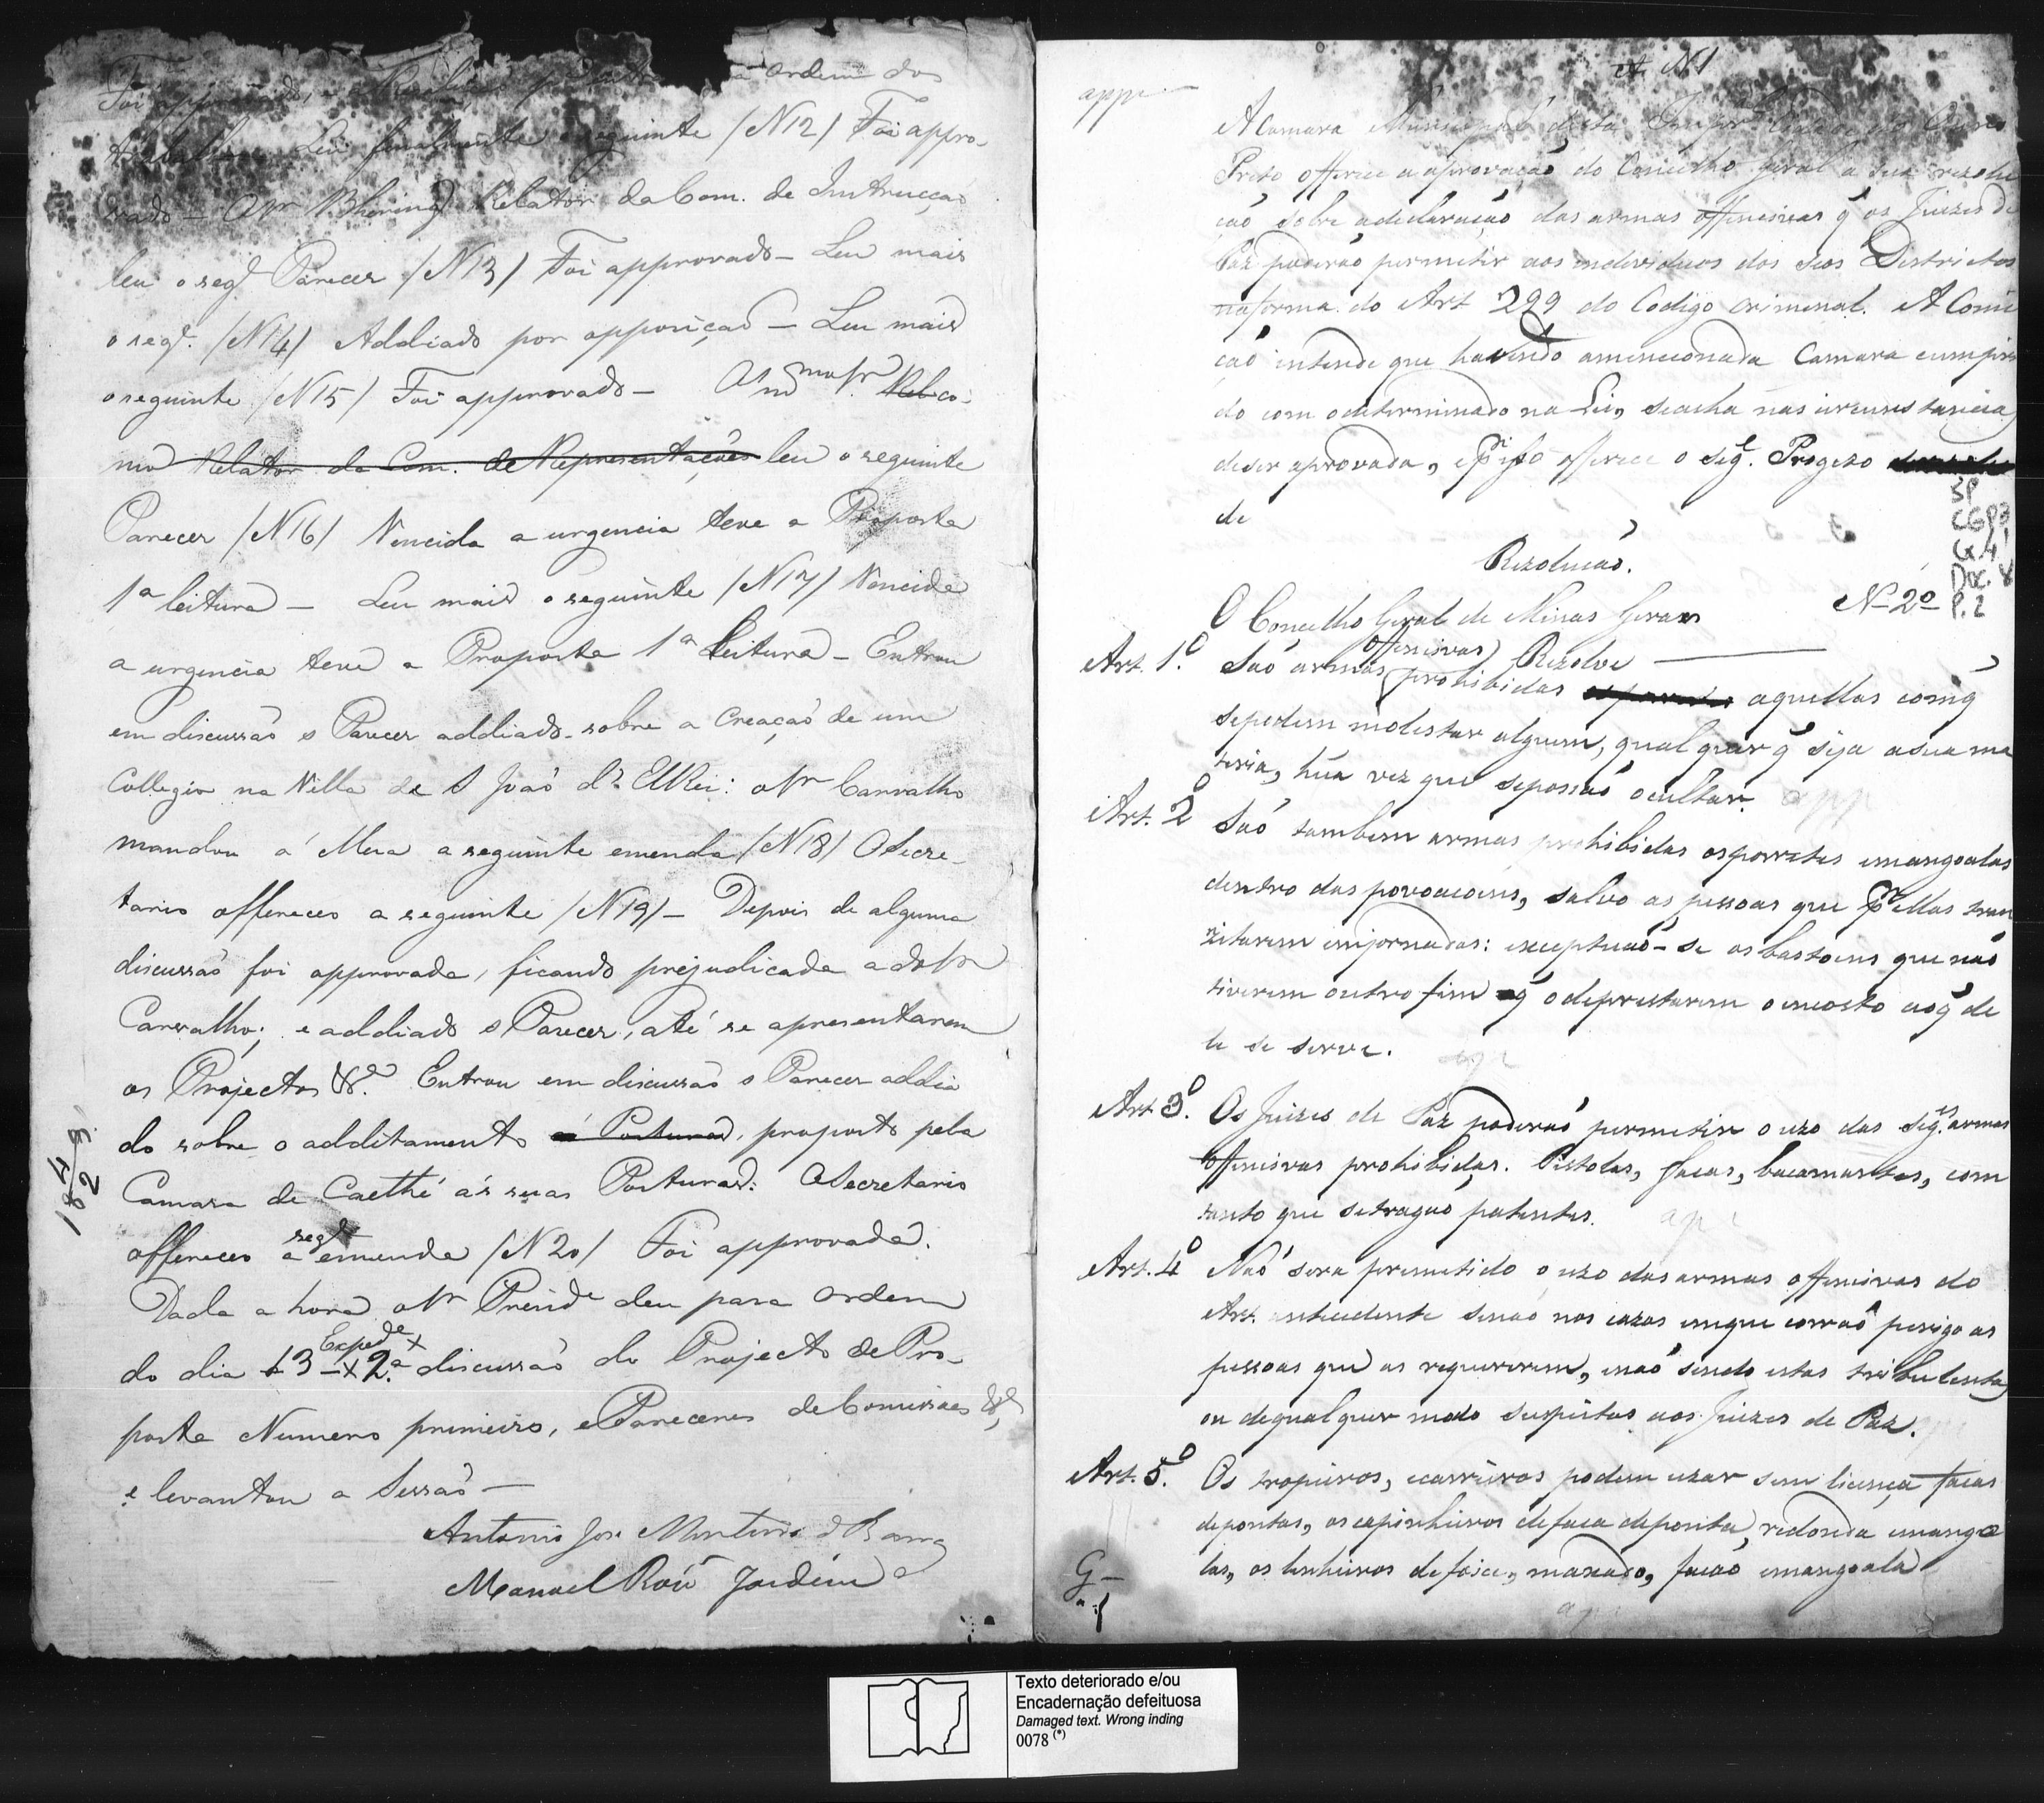 Foi approvado, ordem dos
trabalhos. Leu finalmente o seguinte /N12/ Foi appro-
vado — O Sr Bhering Relator da Com. de Instrucçaõ
leu o segᵉ Parecer /N13/ Foi approvado — Leu mais
o segᵉ. /N14/ Addiado por opposiçaõ — Leu mais
o seguinte /N15/ Foi approvado — O mᵐᵒ Sr.
mo Relator da Com. de Representações leu o seguinte
Parecer /N16/ Vencida a urgencia teve a Proposta
1ª leitura — Leu mais o seguinte /N17/ Vencida
a urgencia teve a Proposta 1ª Leitura — Entrou
em discussaõ o Parecer addiado sobre a Creaçaõ de um
Collegio na Villa de S Joaõ d'ElRei: o Sr Carvalho
mandou á Mesa a seguinte emenda /N18/ O Secre-
tario offereceo a seguinte /N19/ — Depois de alguma
discussaõ foi approvada, ficando prejudicada a do Sr
Carvalho; e addiado o Parecer, até se apresentarem
os Projectos &ª. Entrou em discussaõ o Parecer addia
do sobre o additamento á Posturas, proposto pela
Camara de Caethé ás suas Posturas: O Secretario
offereceo a segᵉ emenda /N20/ Foi approvada.
Dada a hora o Sr Presidᵉ deu para Ordem
do dia 13 — Expedᵉ x 2.ª discussaõ do Projecto de Pro-
posta Numero primeiro, e Pareceres de Comissões &ª,
e levantou a Sessaõ —
Antonio Jose Monteiro de Barros
Manoel Roiz Jardim
N1
appr
A Camara Municipal desta Impᵉʳ Cidade do Ouro
Preto offerece a aprovaçaõ do Concelho Geral a sua rezolu
çaõ sobre a declaraçaõ das armas offencivas q̃ os Juizes de
Paz poderaõ permitir aos individuos dos seos Districtos
na forma do Art 299 do Codigo Criminal. A Comi
çaõ intende que havendo a mencionada Camara cumpri
do com o determinado na Lei, se acha nas circunstancias
de ser aprovada, e pʳ isso offerece o segᵉ. Progeto
de
SP
CGP3
Cx.4
Doc. 8
P.2
Rezoluçaõ.
Nº 2º
O Concelho Geral de Minas Geraes
Rezolve
Art. 1º. Saõ armas offencivas prohibidas aquellas com q̃
se podem molestar alguem, qual quer q̃ seja a sua ma
teria, hũa vez que se possaõ ocultar. app
Art. 2º Saõ tambem armas prohibidas os porretes e mangoalas
dentro das povoacoens, salvo as pessoas que pʳ ellas tran
zitarem em jornadas: exceptuaõ-se os bastoens que naõ
tiverem outro fim q̃ o de prestarem o encosto ao q̃ de
le se serve. app
Art 3º. Os Juizes de Paz poderaõ permitir o uzo das segᵉˢ. armas
offencivas prohibidas. Pistolas, facas, bacamartes, com
tanto que se tragaõ patentes. app
Art. 4º Naõ sera permetido o uzo das armas offencivas do
Art. antecedente senaõ nos cazos em que corraõ perigo as
pessoas que as requererem, e naõ sendo estas tribulentas
ou de qual quer modo suspeitas aos Juizes de Paz.
Art. 5º. Os tropeiros, e carreiros podem uzar sem licença facas
de pontas, os capinheiros de faca de ponta redonda e mango
las, os lenheiros de foice, maxado, facaõ e mangoala
Texto deteriorado e/ou
Encadernação defeituosa
Damaged text. Wrong inding
0078 (*)